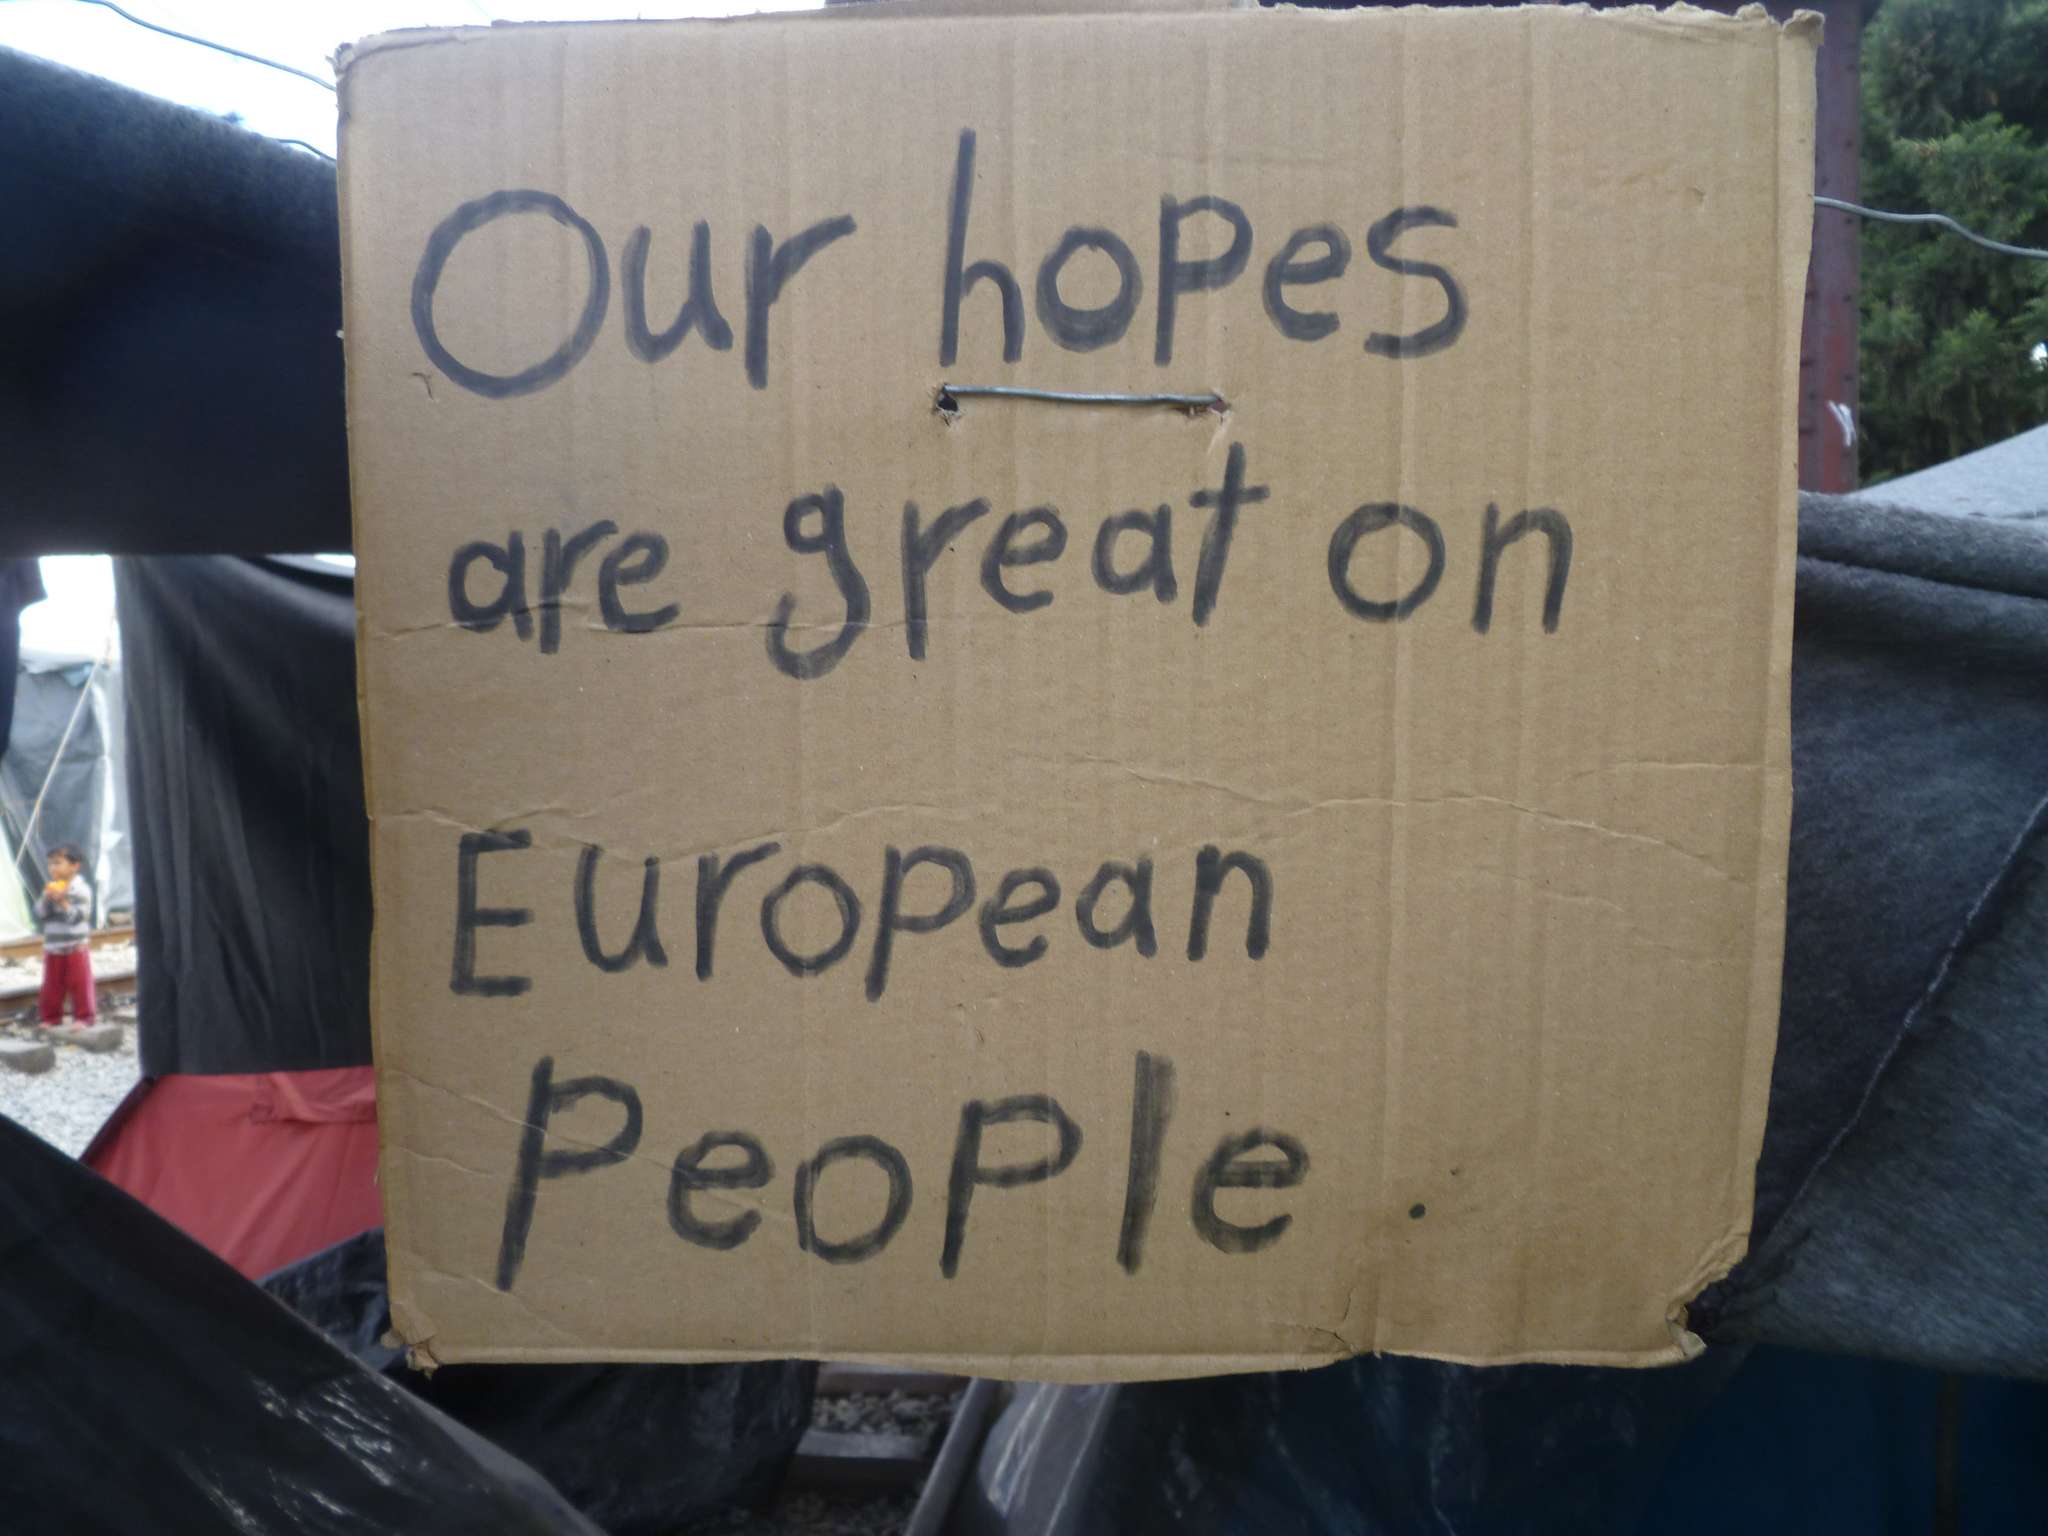 Our hopes
are great on
European
People.